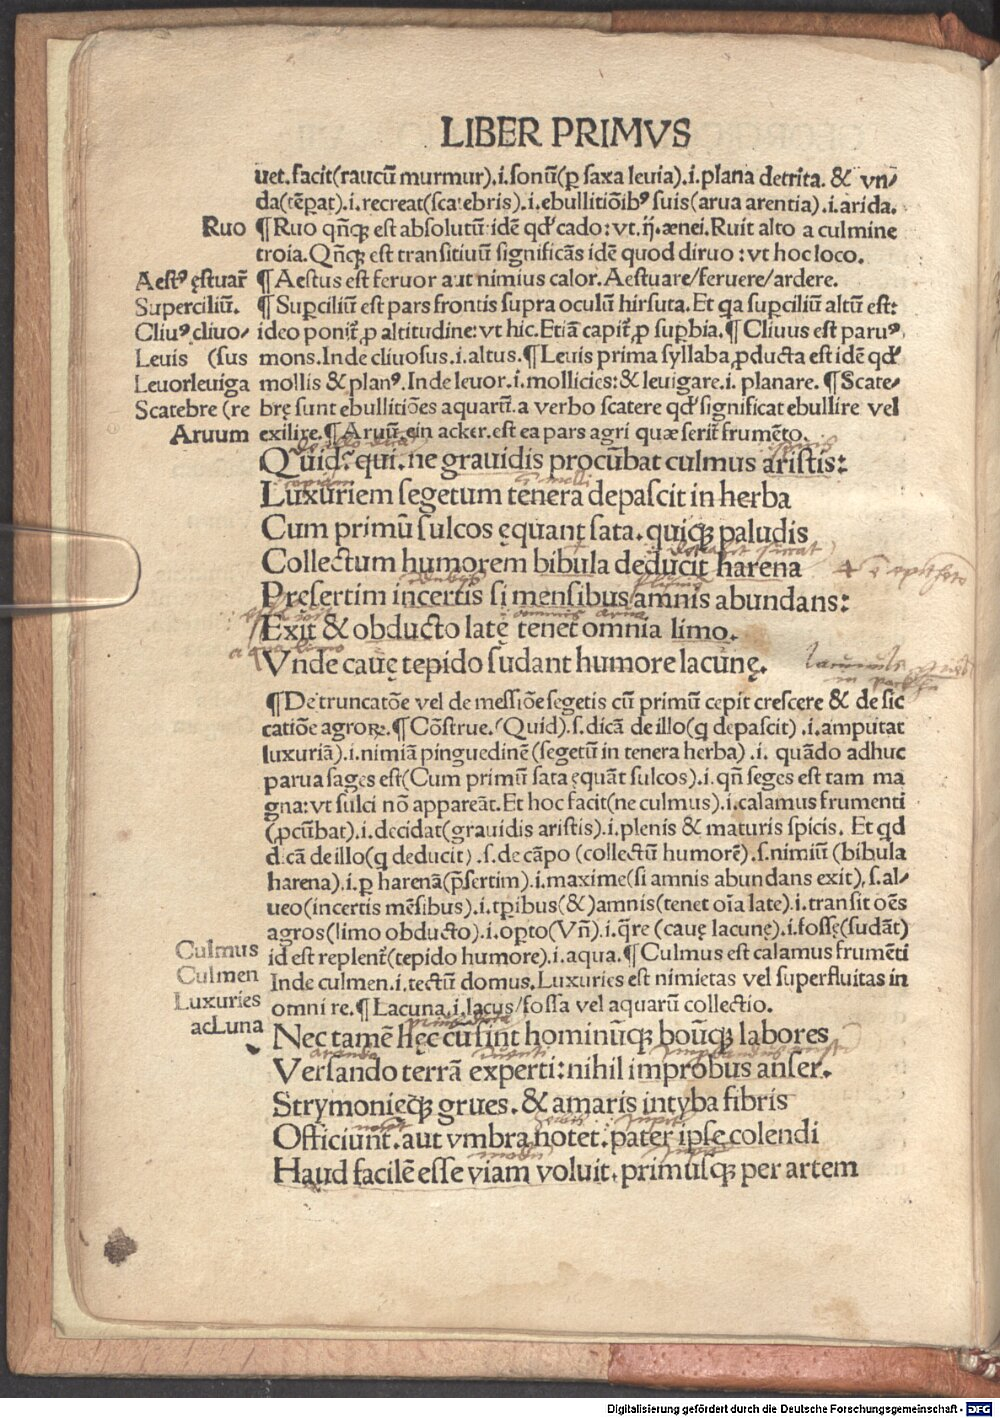 LIBER PRIMVS
uet.facit(raucū murmur).i.sonū(ꝑ saxa leuia).i.plana detrita. & vn/
da(tēꝑat).i.recreat(scatebris).i.ebullitiōibꝰ suis(arua arentia).i.arida.
Ruo ¶Ruo qñqꝫ est absolutū:idē qđ cado:vt.ij.ænei.Ruit alto a culmine
troia.Qñqꝫ est transitiuū significās idē quod diruo:vt hoc loco.
Aestꝰ ęstuar̄ ¶Aestus est feruor aut nimius calor.Aestuare/feruere/ardere.
Superciliū. ¶Suꝑciliū est pars frontis supra oculū hirsuta.Et qa suꝑciliū altū est:
Cliuꝰ cliuo/ ideo ponit̄ ꝓ altitudine:vt hic.Etiā capit̄ ꝓ suꝑbia.¶Cliuus est paruꝰ
Leuis (sus mons.Inde cliuosus.i.altus.¶Leuis prima syllaba ꝓducta est idē qđ
Leuorleuiga mollis & planꝰ.Inde leuor.i.mollicies:& leuigare.i.planare.¶Scate/
Scatebre (re brę sunt ebullitiōes aquarū.a verbo scatere qđ significat ebullire vel
Aruum exilire.¶Aruū.ein acker.est ea pars agri quæ serit̄ frumēto.
Quid?qui.ne grauidis procūbat culmus aristis:
Luxuriem segetum tenera depascit in herba
Cum primū sulcos ęquant sata.quiqꝫ paludis
Collectum humorem bibula deducit harena
Presertim incertis si mensibus amnis abundans:
Exit & obducto latę tenet omnia limo.
Vnde cauę tepido sudant humore lacunę.
¶De truncatōe vel de messiōe segetis cū primū cepit crescere & de sic
catiōe agroꝝ.¶Cōstrue.(Quid).s.dicā de illo(q depascit).i.amputat
luxuriā).i.nimiā pinguedinē(segetū in tenera herba).i. quādo adhuc
parua sages est(Cum primū sata ęquāt sulcos).i.qñ seges est tam ma
gna:vt sulci nō appareāt.Et hoc facit(ne culmus).i.calamus frumenti
(ꝓcūbat).i.decidat(grauidis aristis).i.plenis & maturis spicis. Et qđ
dicā de illo(q deducit).s.de cāpo (collectū humorē).s.nimiū (bibula
harena).i.ꝑ harenā(p̄sertim).i.maxime(si amnis abundans exit),s.al/
ueo(incertis mēsibus).i.tꝑibus(&)amnis(tenet oīa late).i.transit oēs
agros(limo obducto).i.oꝑto(Vñ).i.q̄re (cauę lacunę).i.fossę(sudāt)
Culmus id est replent̄(tepido humore).i.aqua.¶Culmus est calamus frumēti
Culmen Inde culmen.i.tectū domus.Luxuries est nimietas vel superfluitas in
Luxuries omni re.¶Lacuna.i.lacus/fossa vel aquarū collectio.
acLuna Nec tamē hęc cū sint hominūqꝫ boūqꝫ labores
Versando terrā experti:nihil improbus anser.
Strymonięqꝫ grues.& amaris intyba fibris
Officiunt.aut vmbra notet.pater ipse colendi
Haud facilē esse viam voluit.primusqꝫ per artem
Digitalisierung gefördert durch die Deutsche Forschungsgemeinschaft - DFG